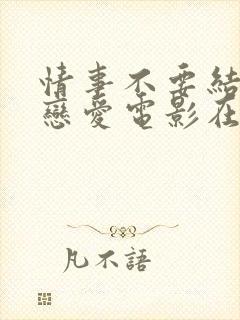 情事不要結
戀愛電影在
凡不語